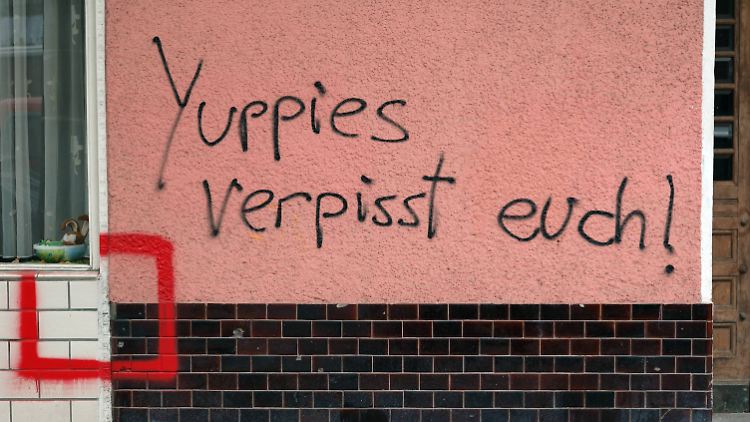 Yuppies
verpisst euch!